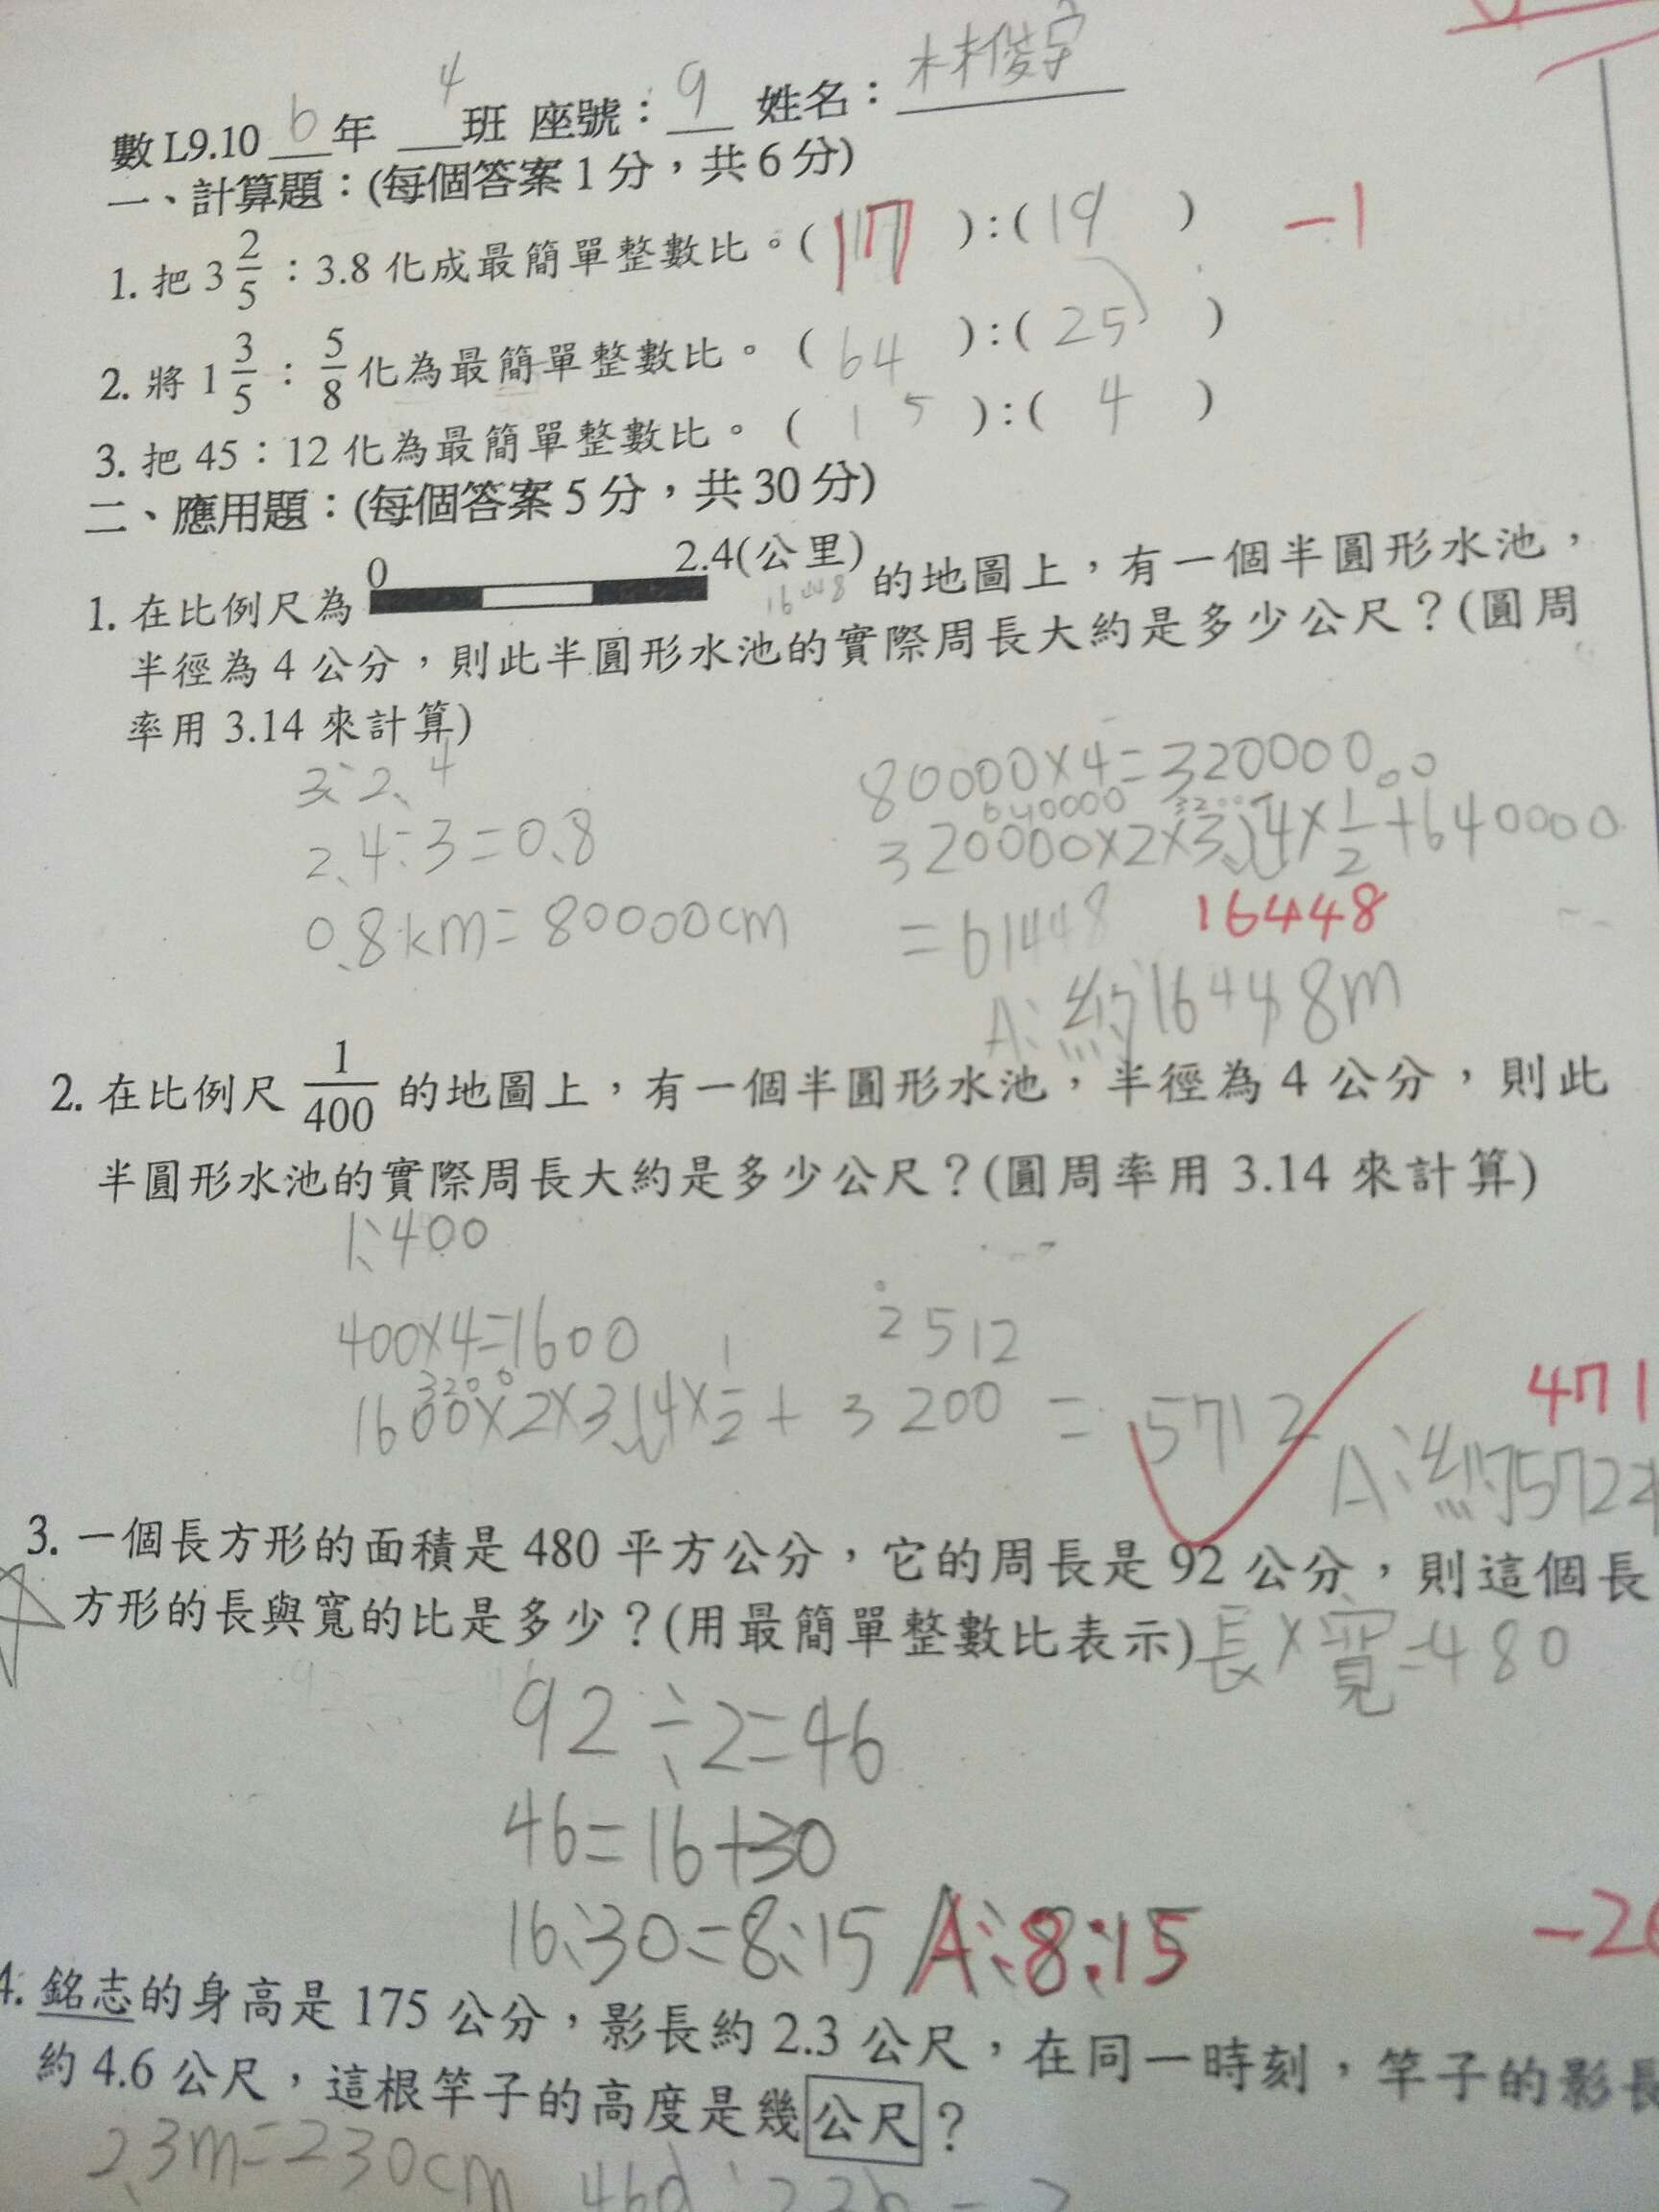 數L9.10 6 年 4 班 座號：9 姓名：林俊宇
一、計算題：(每個答案1分，共6分)
1. 把 3 2/5 : 3.8 化成最簡單整數比。( 17 ):( 19 ) -1
2. 將 1 3/5 : 5/8 化為最簡單整數比。( 64 ):( 25 )
3. 把 45：12 化為最簡單整數比。( 15 ):( 4 )
二、應用題：(每個答案5分，共30分)
0 2.4(公里)
1. 在比例尺為 的地圖上，有一個半圓形水池，
16448
半徑為 4 公分，則此半圓形水池的實際周長大約是多少公尺？(圓周
率用 3.14 來計算)
3:2.4
2.4÷3=0.8
0.8km=80000cm
80000×4=320000
640000
320000×2×3.14×1/2+640000
=61448 16448
A:約16448m
2. 在比例尺 1/400 的地圖上，有一個半圓形水池，半徑為 4 公分，則此
半圓形水池的實際周長大約是多少公尺？(圓周率用 3.14 來計算)
1:400
400×4=1600
3200 2512
1600×2×3.14×1/2+3200=5712
471
A:約572
3. 一個長方形的面積是 480 平方公分，它的周長是 92 公分，則這個長
方形的長與寬的比是多少？(用最簡單整數比表示) 長×寬=480
92÷2=46
46=16+30
16:30=8:15 A:8:15
4. 銘志的身高是 175 公分，影長約 2.3 公尺，在同一時刻，竿子的影長
約 4.6 公尺，這根竿子的高度是幾公尺？
2.3m=230cm